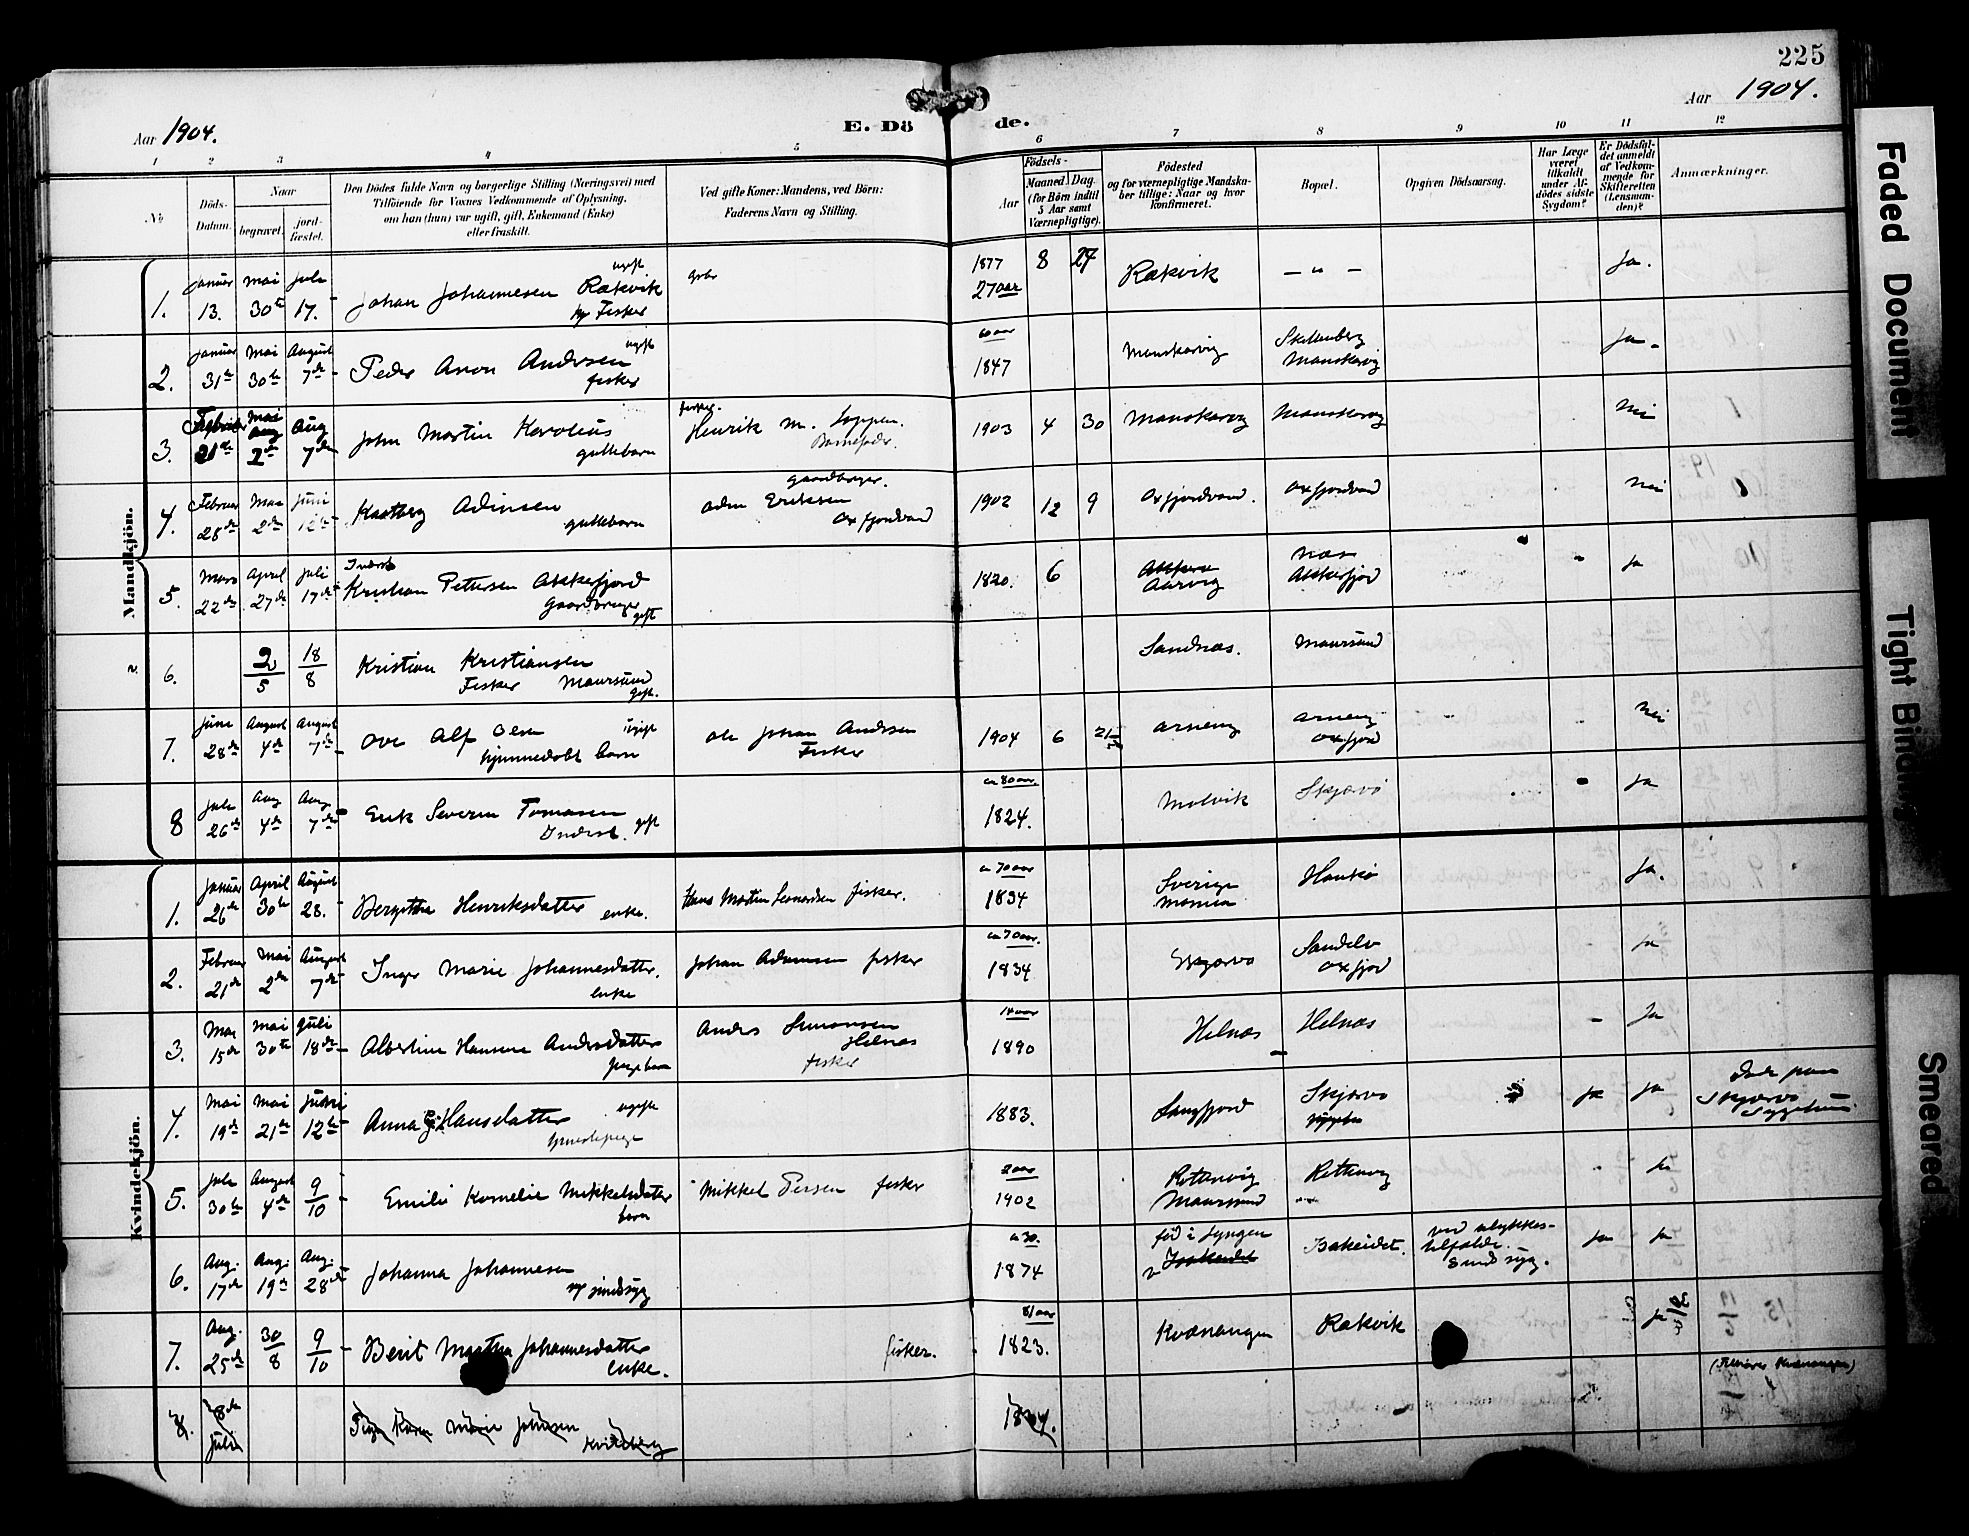 225
Aar 1904.
E. Döde.
Aar 1904.
1 2 3 4 5 6 7 8 9 10 11 12
No
Döds-Datum.
Naar
begravet.
jord-fæstet.
Den Dödes fulde Navn og borgerlige Stilling (Næringsvei) med
Tilföiende for Voxnes Vedkommende af Oplysning,
om han (hun) var ugift, gift, Enkemand (Enke)
eller fraskilt.
Ved gifte Koner: Mandens, ved Börn:
Faderens Navn og Stilling.
Födsels-
Aar
Maaned. Dag.
(for Börn indtil
5 Aar samt
Værnepligtige).
Födested
og for værnepligtige Mandska-
ber tillige: Naar og hvor
konfirmeret.
Bopæl.
Opgiven Dödsaarsag.
Har Læge
været
tilkaldt
under Af-
dödes sidste
Sygdom?
Er Dödsfal-
det anmeldt
af Vedkom-
mende for
Skifteretten
(Lensman-
den)?
Anmærkninger.
Mandkjön.
1. Januar 13. Mai 30te Juli 17. ugift
Johan Johannesen Rækvik
Fisker
1877 8 27
27 aar
Rækvik — " — Ja.
2. Januar 31te Mai 30te August 7de ugift
Peder Aron Andersen
fisker
60 aar
1847
Manskarvig
Manskarvig
Ja
3. Februar 21de Mai Aug 2de Aug 7de
John Martin Karolius
guttebarn
fisker.
Henrik M. Loppen.
Barnefader
1903 4 30 Manskarvig Manskarvig Nei
4. Februar 28de Mai 2de Juni 12te
Adinsen
guttebarn
gaardbruger.
Adin Eriksen
Oxfjordvand
1902 12 9 Oxfjordvand. Oxfjordvand Nei
5. Mars 22de April 27de Juli 17de
Inderst
Kristian Pettersen Akkerfjord
Gaardbruger
gift
1820. 6
Aarvig
Næs
Akkerfjord
Ja
6. 2/5 18/8
Kristian Kristiansen
Fisker Maursund
gift.
Sandnæs. Maursund
7. Juni 28de August 4de August 7de
Ove Alf Olsen ugift
hjemmedøbt barn
Ole Johan Andersen
Fisker
1904 6 21
Arnøng
Arnøng
Oxfjord
Nei
8 Juli 26de Aug 4de Aug. 7de
Erik Severin Tomasen
Inderst. gift
ca 80 aar
1824.
Molvik Skjærvø Ja
Kvindekjön.
1. Januar 26de April 30te August 28.
Bergitha Henriksdatter enke.
Hans Martin Leonardsen fisker.
ca 70 aar
1834
Sverige
Haukø Ja.
2. Februar 21de Mai 2de August 7de
Inger Marie Johannesdatter.
enke
Johan Adamsen fisker
ca 70 aar.
1834
Skjærvø
Oxfjord
Ja
3. Mai 15de Mai 30te Juli 18de
Albertine Hansine Andersdatter
pigebarn
Anders Simonsen
Helnæs
fisker
14 aar
1890
Helnæs Helnæs Ja
4. Mai 19de Mai 21de Juni 12te
Anna Hansdatter ugift
tjenestepige
1883.
Langfjord
Skjærvø
Ja Ja
Døde paa
Skjærvø
Sygehus
5. Juli 30te August 4de 9/10
Emilie Kornelie Mikkelsdatter
barn
Mikkel Persen fisker
2 aar
1902
Rottenvig
Maursund
Rottenvig
Ja
6. Aug. 17de Aug. 19de Aug. 28de
Johanna Johannesen
sindssyg
ca 30.
1874
fød i Lyngen
Isakeidet.
ved ulykkes-
tilfælde.
Sindssyg.
Ja Ja
7. Aug. 25de 30/8 9/10
Berit Martha Johannesdatter
enke.
fisker.
81 aar
1823.
Kvænangen Rækvik Ja
8. 8de Juli
Karen Marie Johnsen
Faded Document
Tight Binding
Smeared